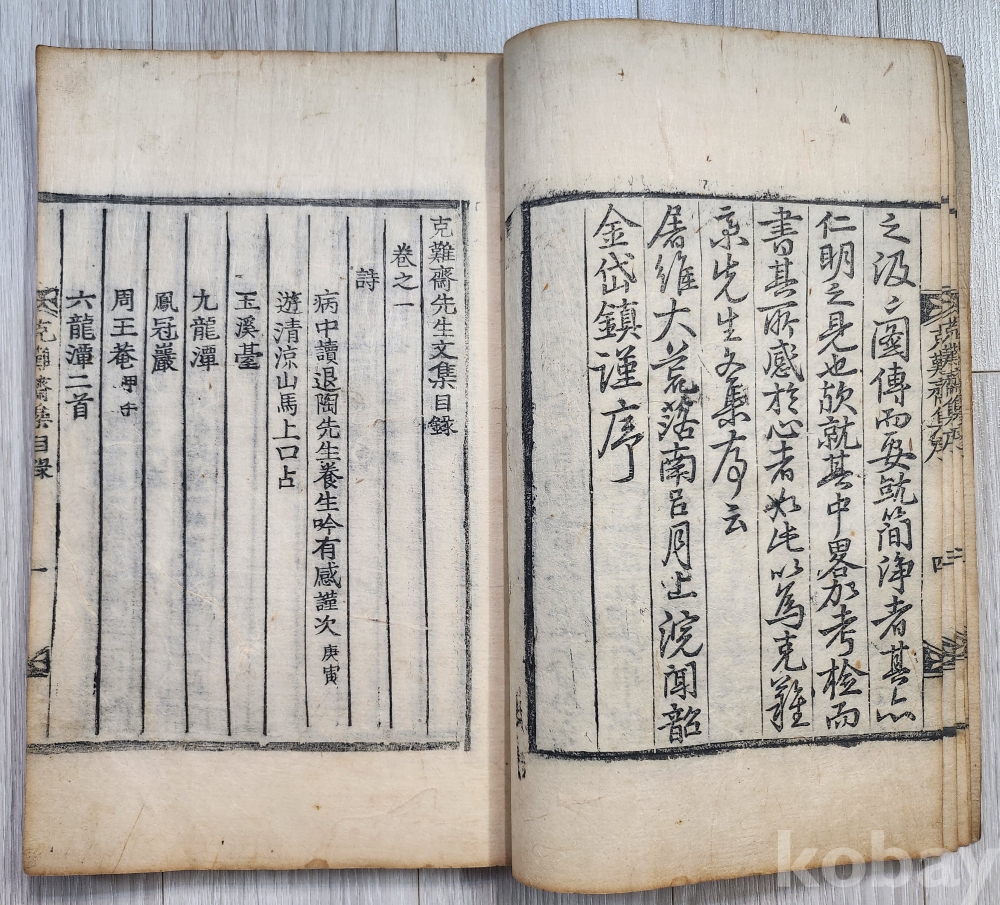 之汲〻國傳而要就簡淨者其亦
仁明之見也欤就其中畧加考檢而
書其所感於心者如此以為克難
齋先生文集序云
屠維大荒落南呂月上浣聞韶
金岱鎮謹序
克難齋集序
克難齋先生文集目錄
卷之一
詩
病中讀退陶先生養生吟有感謹次 庚寅
遊清涼山馬上口占
玉溪臺
九龍潭
鳳冠巖
周王菴 甲午
六龍潭二首
克難齋集目錄
一
kobay